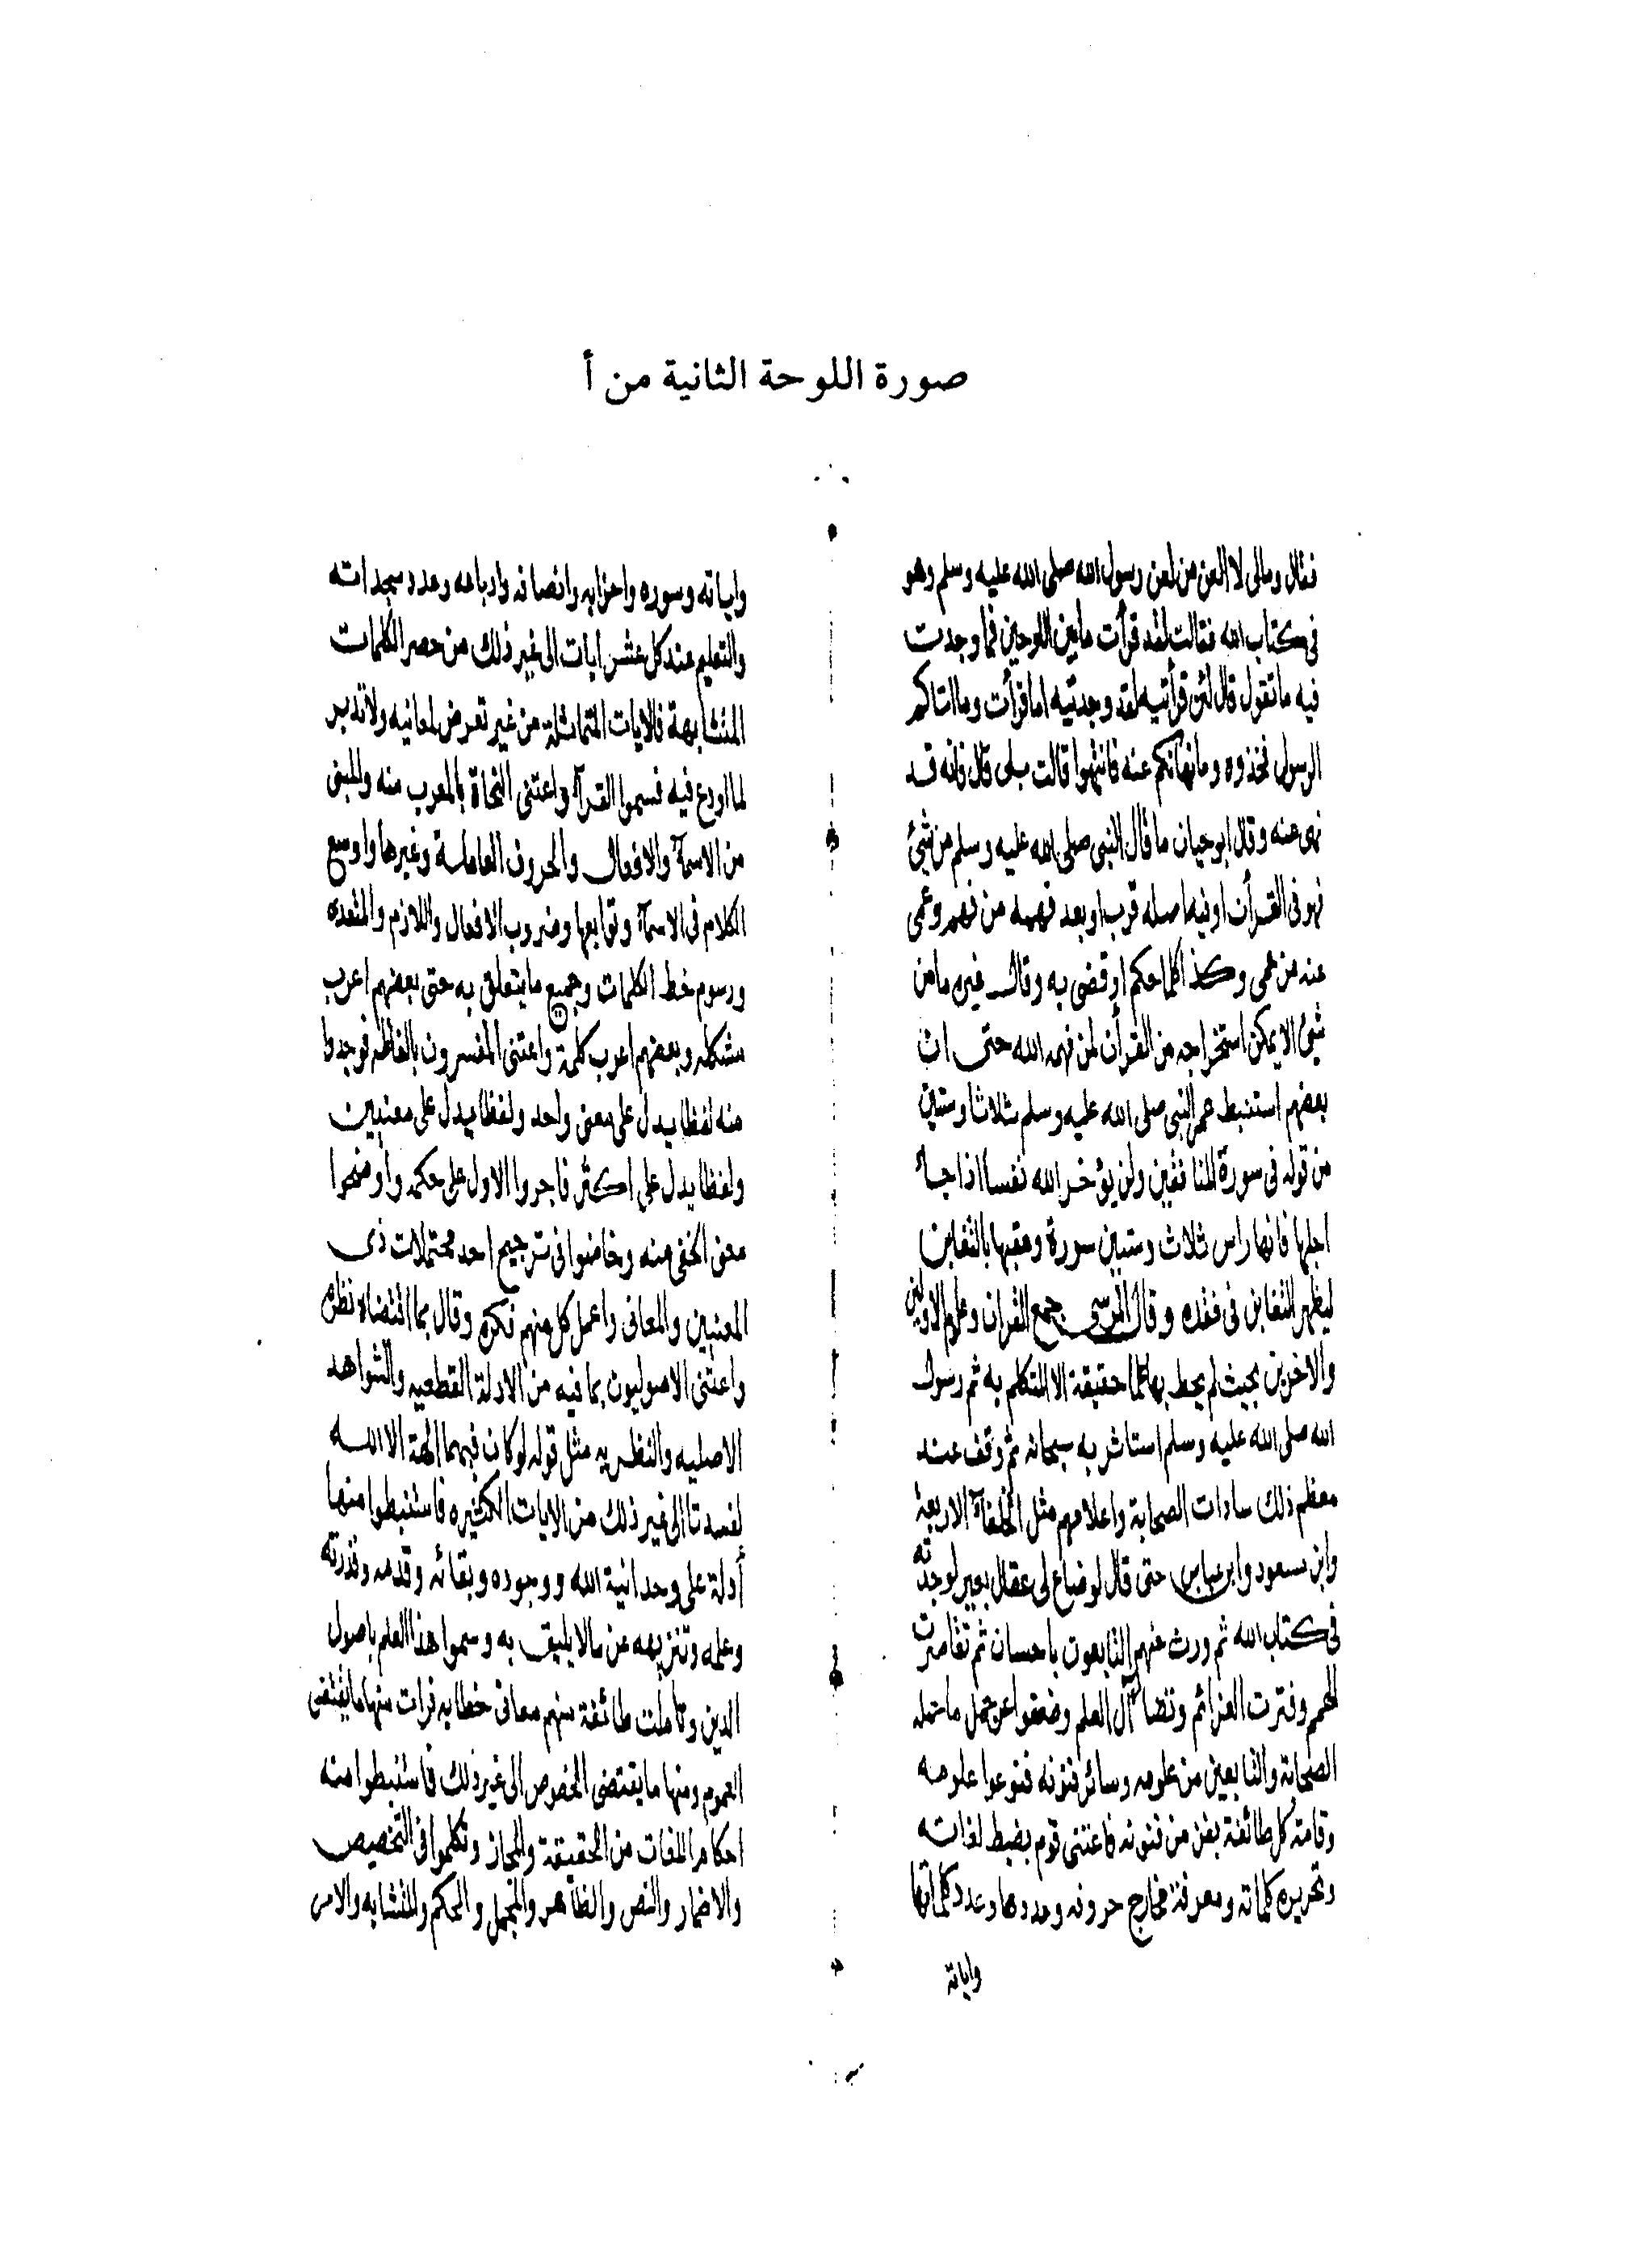 صورة اللوحة الثانية من أ
فقال ومالى لا العن من لعن رسول الله صلى الله عليه وسلم وهو
فى كتاب الله فقالت لقد قرأت ما بين اللوحين فما وجدت
فيه ما تقول قال لئن قرأتيه لقد وجدتيه اما قرأت وما اتاكم
الرسول فخذوه وما نهاكم عنه فانتهوا قالت بلى قال فانه قد
نهى عنه وقال ابو حيان ما قال النبى صلى الله عليه وسلم من شئ
فهو فى القرأن او فيه اصله قرب او بعد فهمه من فهم وعمى
عنه من عمى وكذا كلما حكم او قضى به وقال غيره ما من
شئ الا يمكن استخراجه من القرأن لمن فهمه الله حتى ان
بعضهم استنبط عمر النبى صلى الله عليه وسلم ثلاثا وستين
من قوله فى سورة المنافقين ولن يؤخر الله نفسا اذا جاء
اجلها فانها راس ثلاث وستين سورة وعقبها بالتغابن
ليظهر التغابن فى فقده وقال المرسى جمع القران وعلوم الاولين
والاخرين بحيث لم يحط بها علما حقيقة الا المتكلم به ثم رسول
الله صلى الله عليه وسلم استاثر به سبحانه ثم وقف عند
معظم ذلك سادات الصحابة واعلامهم مثل الخلفاء الاربعة
وابن مسعود وابن عباس حتى قال لو ضاع لى عقال بعير لوجدته
فى كتاب الله ثم ورث عنهم التابعون باحسان ثم تقاصرت
الهمم وفترت العزائم وتضاءل اهل العلم وضعفوا عن حمل ما حمله
الصحابة والتابعين من علومه وسائر فنونه فنوعوا علومه
وقامة كل طائفة بفن من فنونه فاعتنى قوم بضبط لغاته
وتحرير كلماته ومعرفة مخارج حروفه وعددها وعدد كلماتها
واياته
واياته وسوره واحزابه وانصافه وارباعه وعدد سجداته
والتعليم عند كل عشر ايات الى غير ذلك من حصر الكلمات
المتشابهة فالايات المتماثلة من غير تعرض لمعانيه ولا تدبر
لما اودع فيه فسموا القراء واعتنى النحاة بالمعرب منه والمبنى
من الاسماء والافعال والحروف العاملة وغيرها واوسع
الكلام فى الاسماء وتوابعها وضروب الافعال واللازم والمتعدى
ورسوم خط الكلمات وجميع ما يتعلق به حتى بعضهم اعرب
مشكله وبعضهم اعرب كلمة واعتنى المفسرون بالفاظه فوجدوا
منه لفظا يدل على معنى واحد ولفظا يدل على معنيين
ولفظا يدل على اكثر فاجروا الاول على حكمه واوضحوا
معنى الخفى منه وخاضوا فى ترجيح احد محتملات ذى
المعنيين والمعانى واعمل كل منهم فكره وقال بما اقتضاه نظره
واعتنى الاصوليون بما فيه من الادلة القطعيه والشواهد
الاصليه والنظريه مثل قوله لو كان فيهما الهة الا الله
لفسدتا الى غير ذلك من الايات الكثيره فاستنبطوا منها
أدلة على وحدانية الله ووجوده وبقائه وقدمه وقدرته
وعلمه وتنزيهه عن مالا يليق به وسموا هذا العلم باصول
الدين وتاملت طائفة منهم معانى خطابه فرات منها ما يقتضى
العموم ومنها ما يقتضى الخصوص الى غير ذلك فاستنبطوا منه
احكام اللغات من الحقيقة والمجاز وتكلموا فى التخصيص
والاضمار والنص والظاهر والمجمل والمحكم والمتشابه والامر